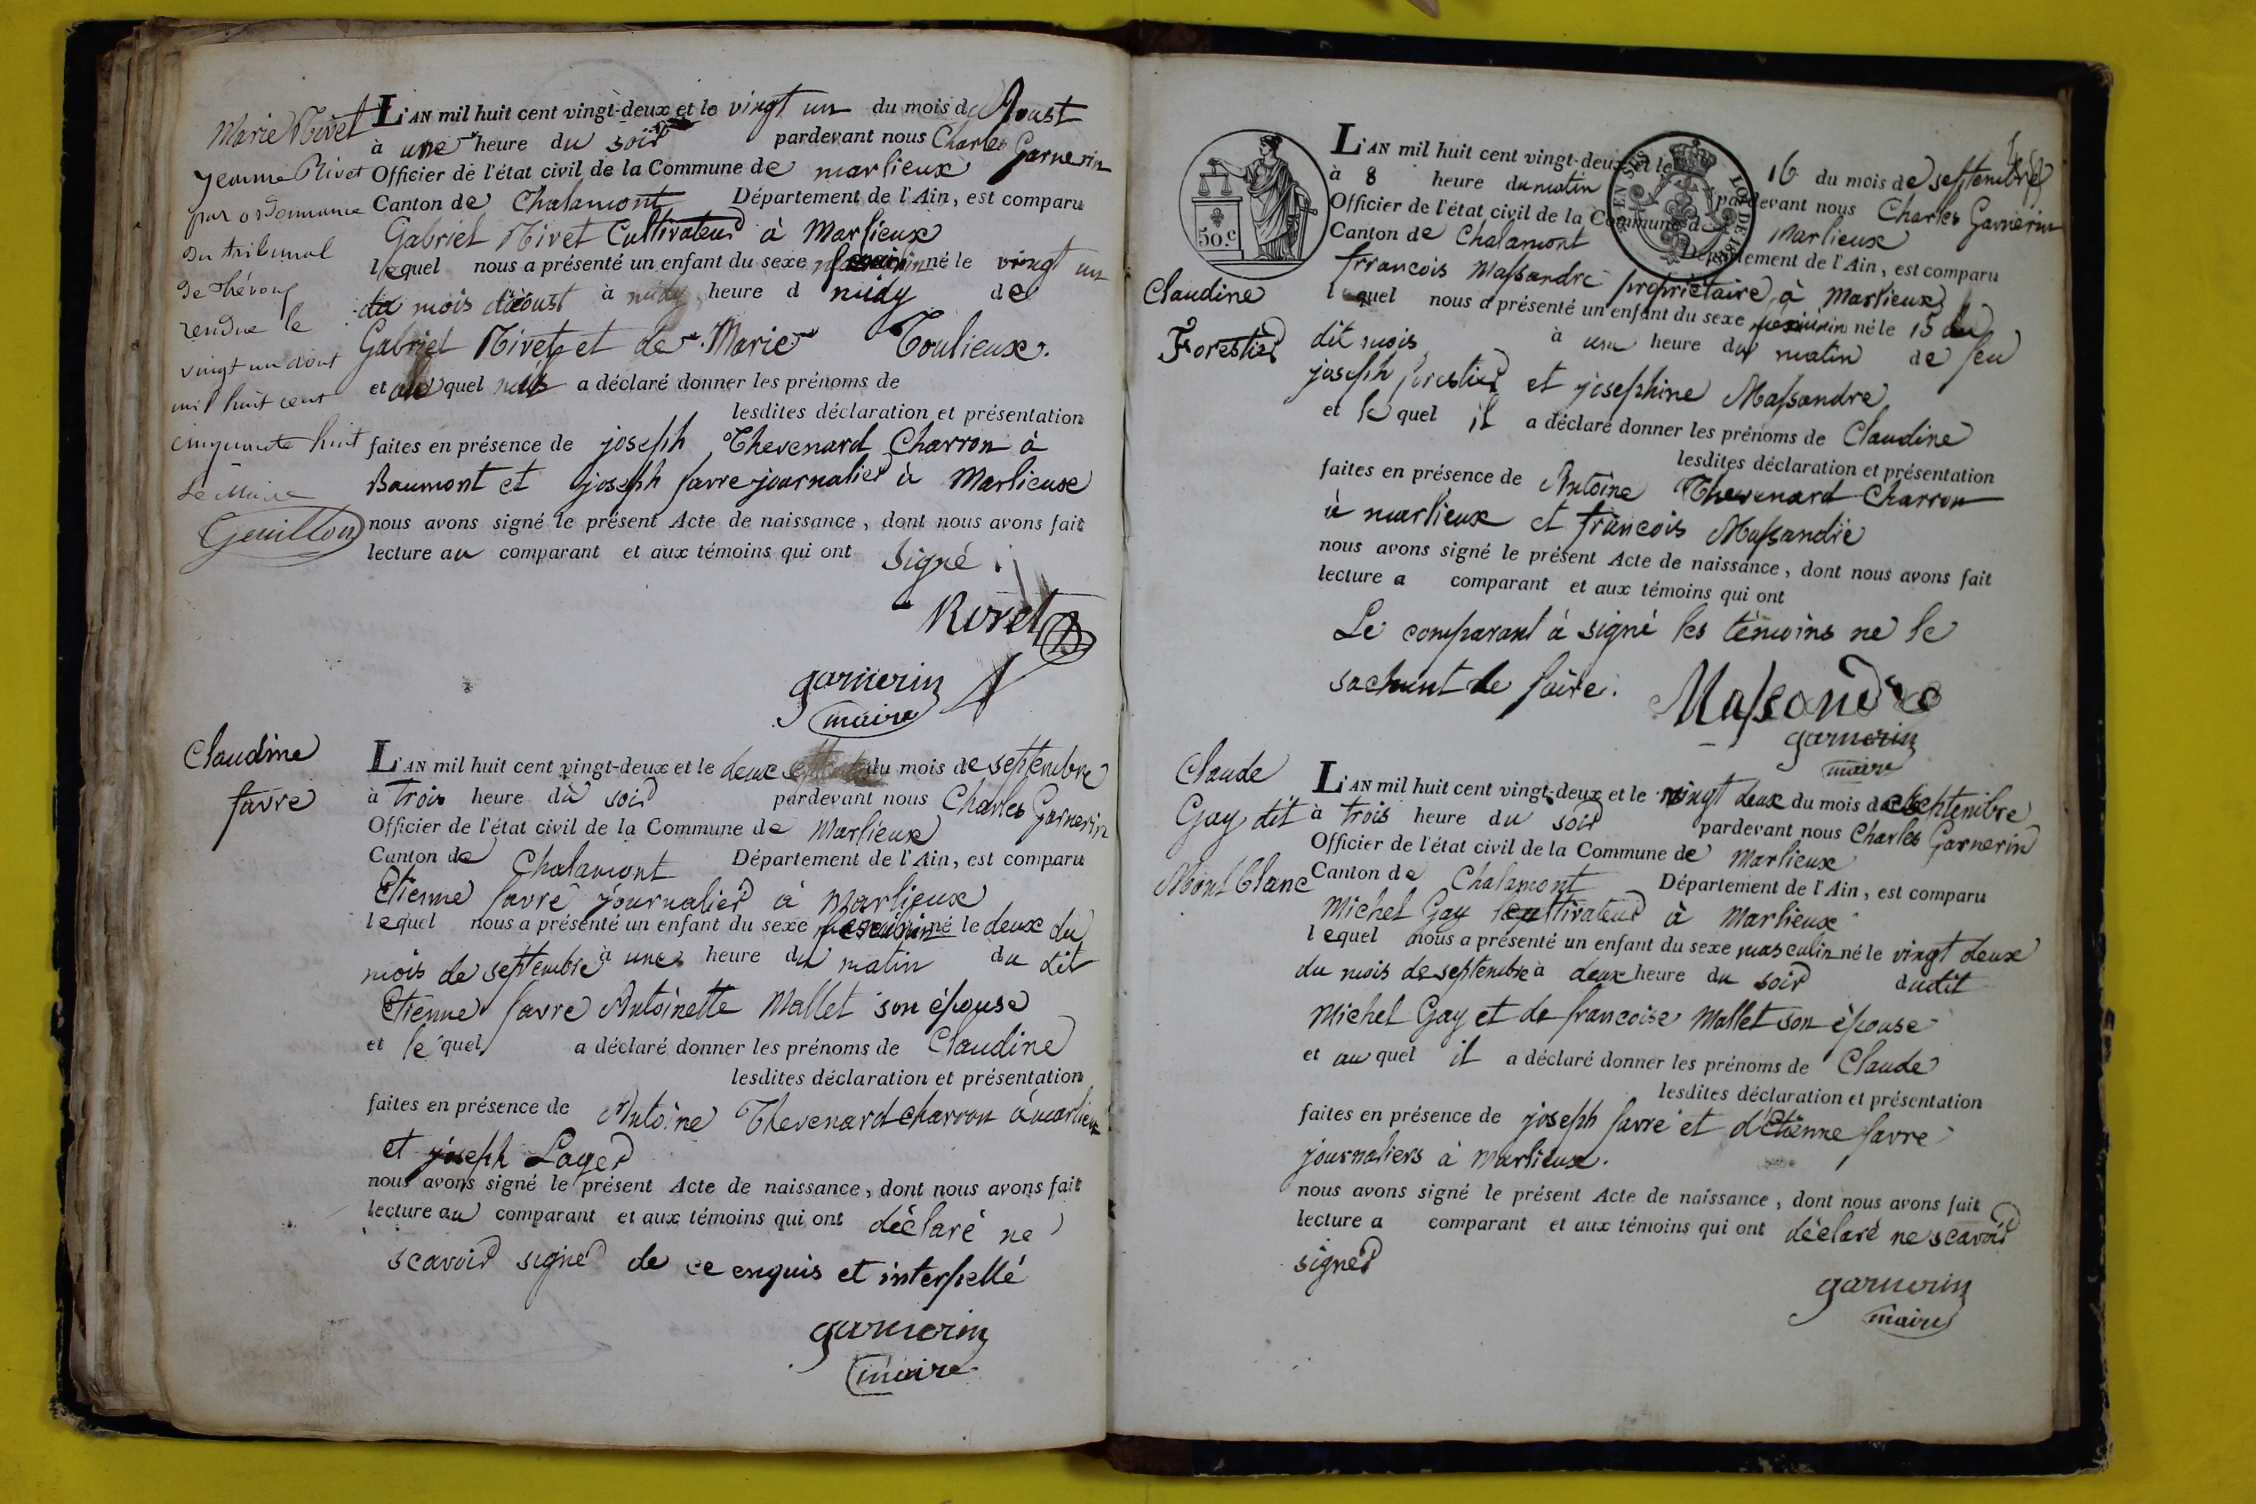 Marie Rivet
Jeanne Rivet
par ordonnance
du tribunal
de Trévoux
rendue le
vingt un aout
mil huit cent
cinquante huit
Le Maire
Genillon
L'AN mil huit cent vingt-deux et le vingt un du mois d'Aoust
à une heure du soir pardevant nous Charles Garnerin
Officier de l'état civil de la Commune de marlieux
Canton de Chalamont Département de l'Ain, est comparu
Gabriel Rivet Cultivateur à Marlieux
lequel nous a présenté un enfant du sexe né le vingt un
du mois d'aoust à midy heure d midy de
Gabriel Rivet et de Marie Toulieux.
et au quel a déclaré donner les prénoms de
lesdites déclaration et présentation
faites en présence de joseph Thevenard Charron à
Baumont et joseph favre journalier à Marlieux
nous avons signé le présent Acte de naissance, dont nous avons fait
lecture au comparant et aux témoins qui ont signé.
Rivet
garnerin
maire
Claudine
favre
L'AN mil huit cent vingt-deux et le deux du mois de septembre
à trois heure du soir pardevant nous Charles Garnerin
Officier de l'état civil de la Commune de Marlieux
Canton de Chalamont Département de l'Ain, est comparu
Etienne favre journalier à Marlieux
lequel nous a présenté un enfant du sexe né le deux du
mois de septembre à une heure du matin du dit
Etienne favre Antoinette Mallet son épouse
et le quel a déclaré donner les prénoms de Claudine
lesdites déclaration et présentation
faites en présence de Antoine Thevenard charron à marlieux
et joseph Layer
nous avons signé le présent Acte de naissance, dont nous avons fait
lecture au comparant et aux témoins qui ont déclaré ne
scavoir signer de ce enquis et interpellé
garnerin
maire
50.c
EN SUS LOI DE 18
Claudine
Forestier
L'AN mil huit cent vingt-deux et le 16 du mois de septembre
à 8 heure du matin pardevant nous Charles Garnerin
Officier de l'état civil de la Commune de Marlieux
Canton de Chalamont Département de l'Ain, est comparu
francois Massandre propriétaire à Marlieux
lequel nous a présenté un enfant du sexe né le 15 du
dit mois à une heure du matin de feu
joseph forestier et josephine Massandre
et le quel il a déclaré donner les prénoms de Claudine
lesdites déclaration et présentation
faites en présence de Antoine Thevenard Charron
à marlieux et francois Massandre
nous avons signé le présent Acte de naissance, dont nous avons fait
lecture a comparant et aux témoins qui ont
Le comparant à signé les témoins ne le
sachant de faire.
Massandre
garnerin
maire
Claude
Gay dit
Mont blanc
L'AN mil huit cent vingt-deux et le vingt deux du mois de septembre
à trois heure du soir pardevant nous Charles Garnerin
Officier de l'état civil de la Commune de Marlieux
Canton de Chalamont Département de l'Ain, est comparu
Michel Gay cultivateur à Marlieux
lequel nous a présenté un enfant du sexe masculin né le vingt deux
du mois de septembre à deux heure du soir dudit
Michel Gay et de francoise Mallet son épouse
et au quel il a déclaré donner les prénoms de Claude
lesdites déclaration et présentation
faites en présence de joseph favre et d'Etienne favre
journaliers à Marlieux.
nous avons signé le présent Acte de naissance, dont nous avons fait
lecture a comparant et aux témoins qui ont déclaré ne scavoir
signer
garnerin
maire